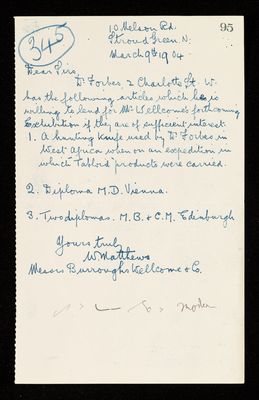 345
95
10 Nelson Rd.
Stroud Green. N.
March 9th 1904
Dear Sirs,
Dr Forbes, 2 Charlotte St. W.
has the following articles which he is
willing to lend for Mr Wellcome's forthcoming
Exhibition if they are of sufficient interest.
1. A hunting knife used by Dr Forbes in
West Africa when on an expedition in
which 'Tabloid' products were carried.
2. Diploma M.D. Vienna.
3. Two diplomas. M.B. & C.M. Edinburgh
Yours truly
W Matthews
Messrs Burroughs Wellcome & Co.